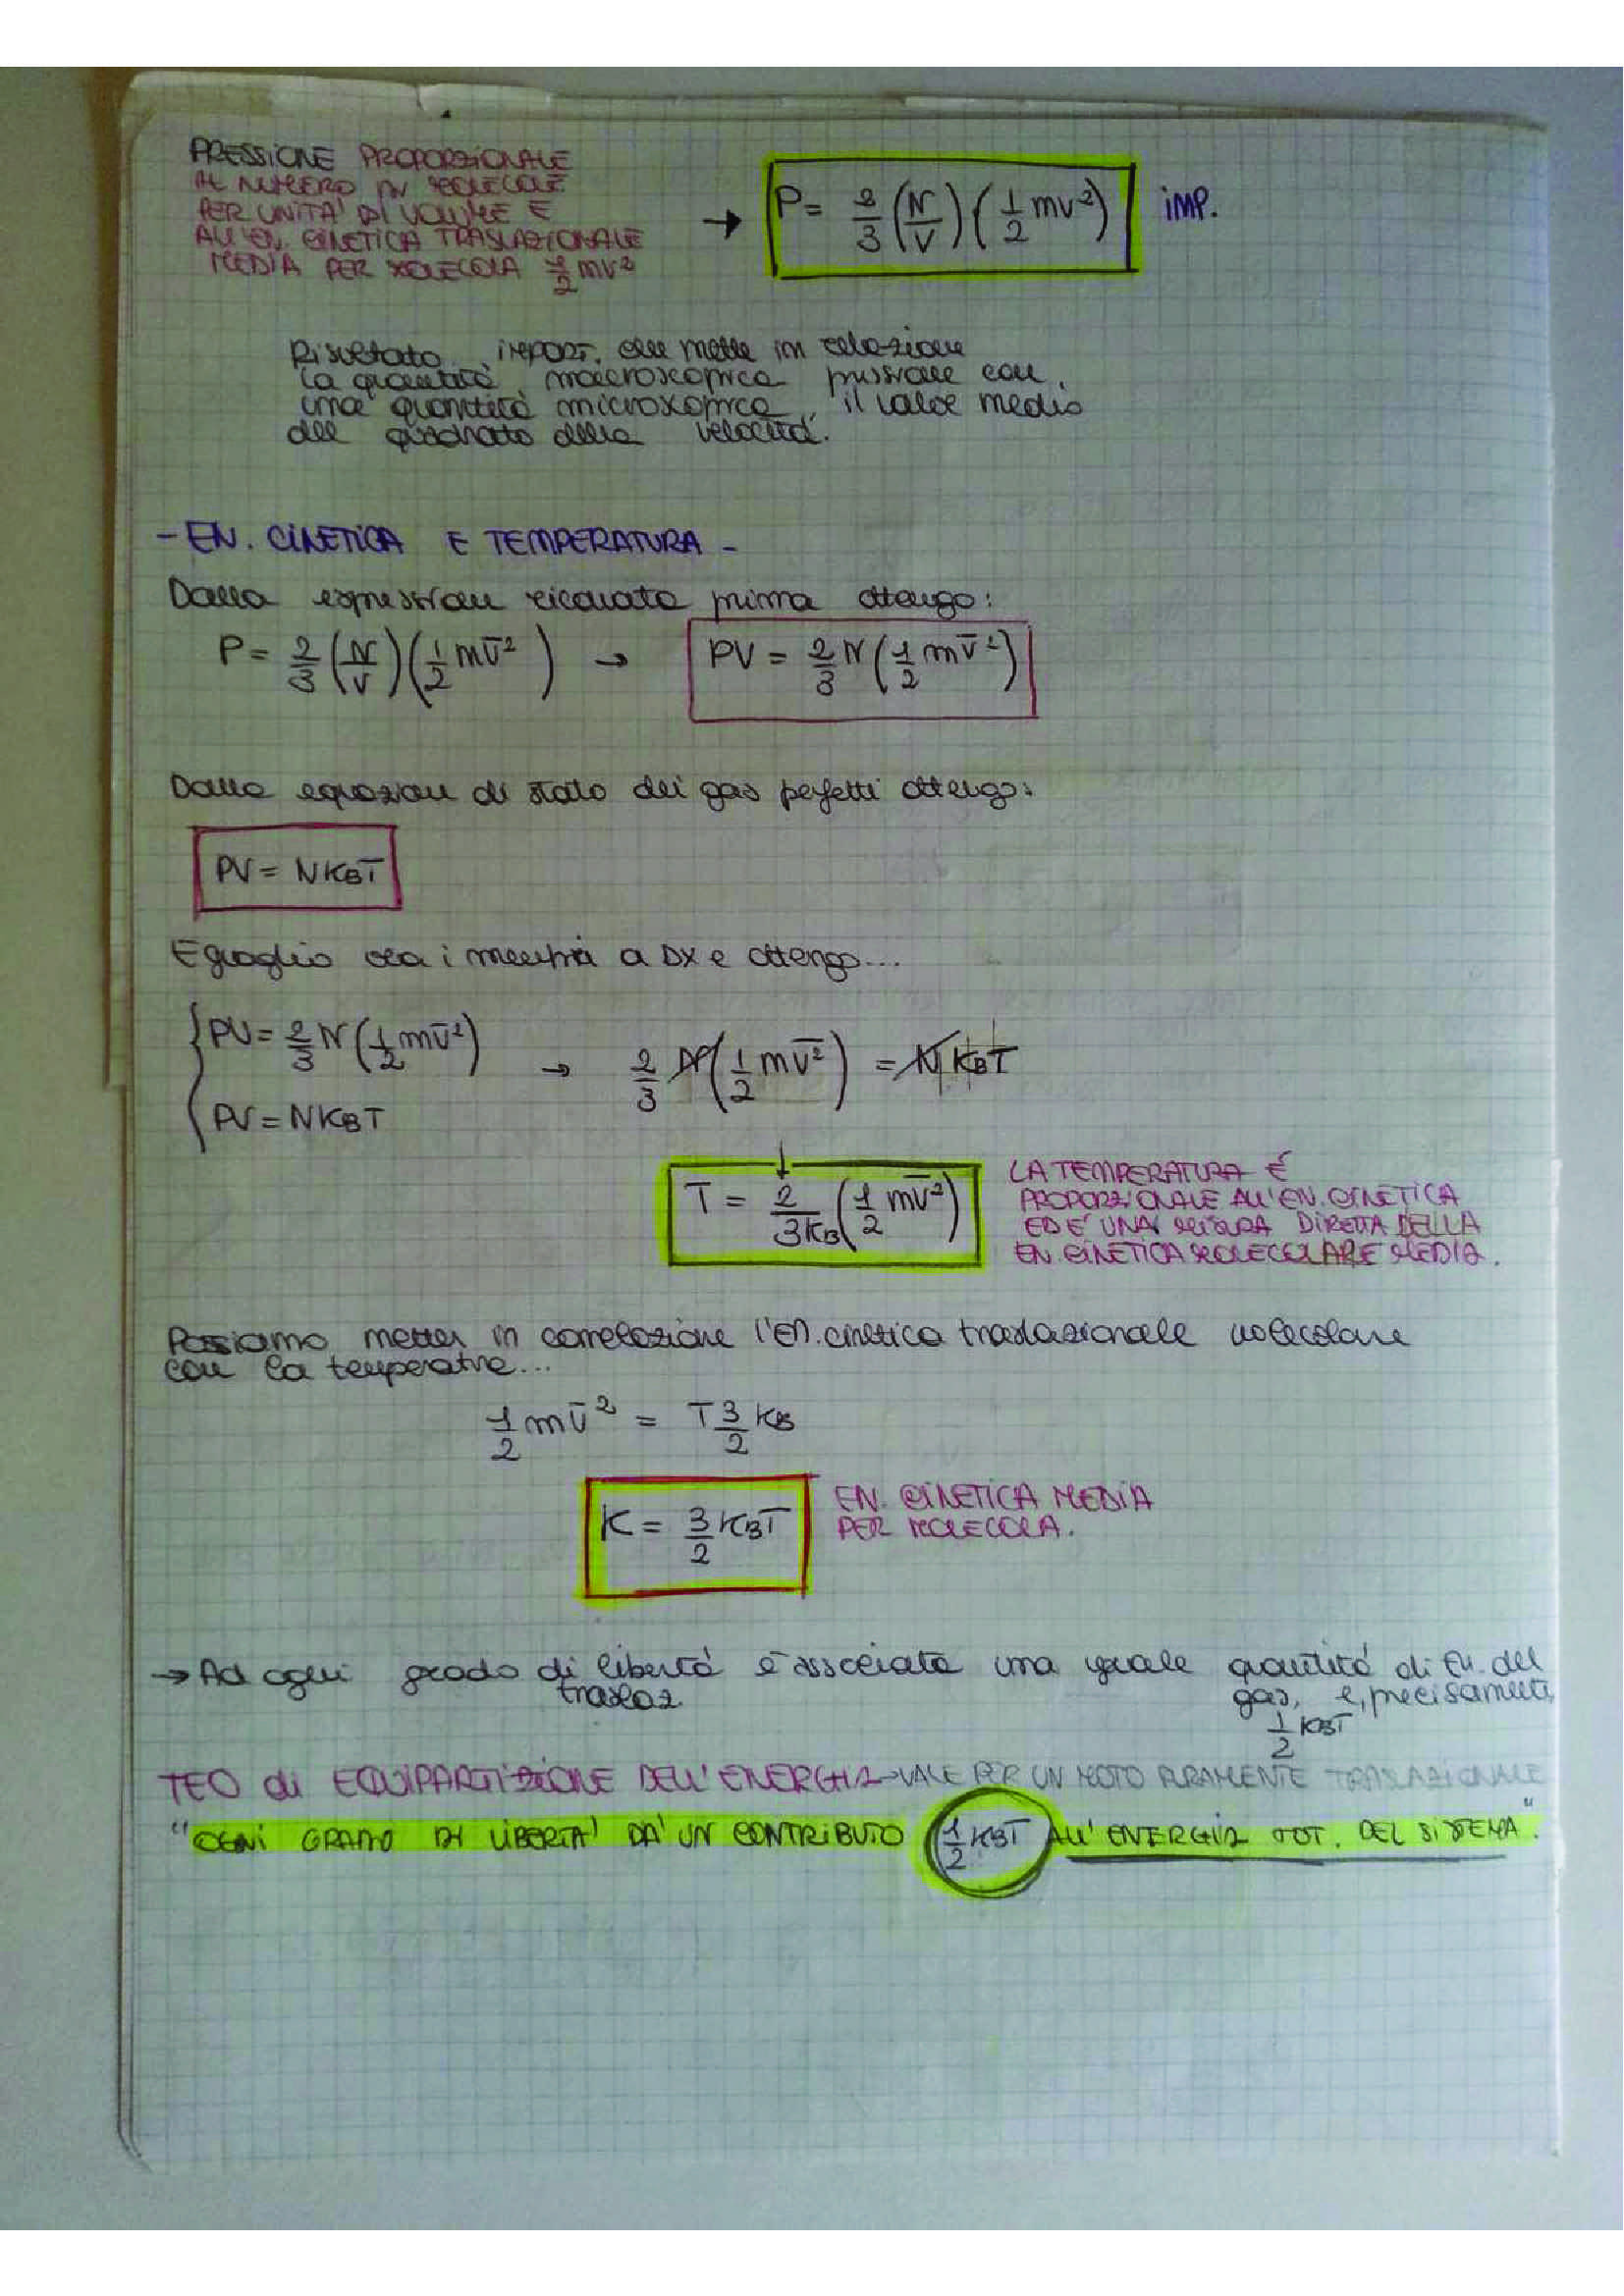 PRESSIONE PROPORZIONALE
AL NUMERO DI MOLECOLE
PER UNITA' DI VOLUME E
ALL'EN. CINETICA TRASLAZIONALE
MEDIA PER MOLECOLA 1/2 mv²
→ P = 2/3 (N/V) (1/2 mv²) IMP.
Risultato import. che mette in relazione
la quantità macroscopica pressione con
una quantità microscopica, il valore medio
del quadrato della velocità.
- EN. CINETICA E TEMPERATURA -
Dalla espressione ricavata prima ottengo:
P = 2/3 (N/V) (1/2 mv̄²) → PV = 2/3 N (1/2 mv̄²)
Dalla equazione di stato dei gas perfetti ottengo:
PV = NKBT
Eguaglio ora i membri a DX e ottengo...
{ PV = 2/3 N (1/2 mv̄²)
PV = NKBT
→ 2/3 N (1/2 mv̄²) = N KBT
↓
T = 2/3KB (1/2 mv̄²)
LA TEMPERATURA É
PROPORZIONALE ALL'EN. CINETICA
ED E' UNA MISURA DIRETTA DELLA
EN. CINETICA MOLECOLARE MEDIA.
Possiamo metter in correlazione l'en. cinetica traslazionale molecolare
con la temperatura...
1/2 mv̄² = T 3/2 KB
K = 3/2 KBT
EN. CINETICA MEDIA
PER MOLECOLA.
→ Ad ogni grado di libertà è associata una uguale quantità di En. del
traslaz. gas, e, precisamente,
1/2 KBT
TEO di EQUIPARTIZIONE DELL'ENERGIA → VALE PER UN MOTO PURAMENTE TRASLAZIONALE
"OGNI GRADO DI LIBERTA' DA' UN CONTRIBUTO 1/2 KBT ALL'ENERGIA TOT. DEL SISTEMA."